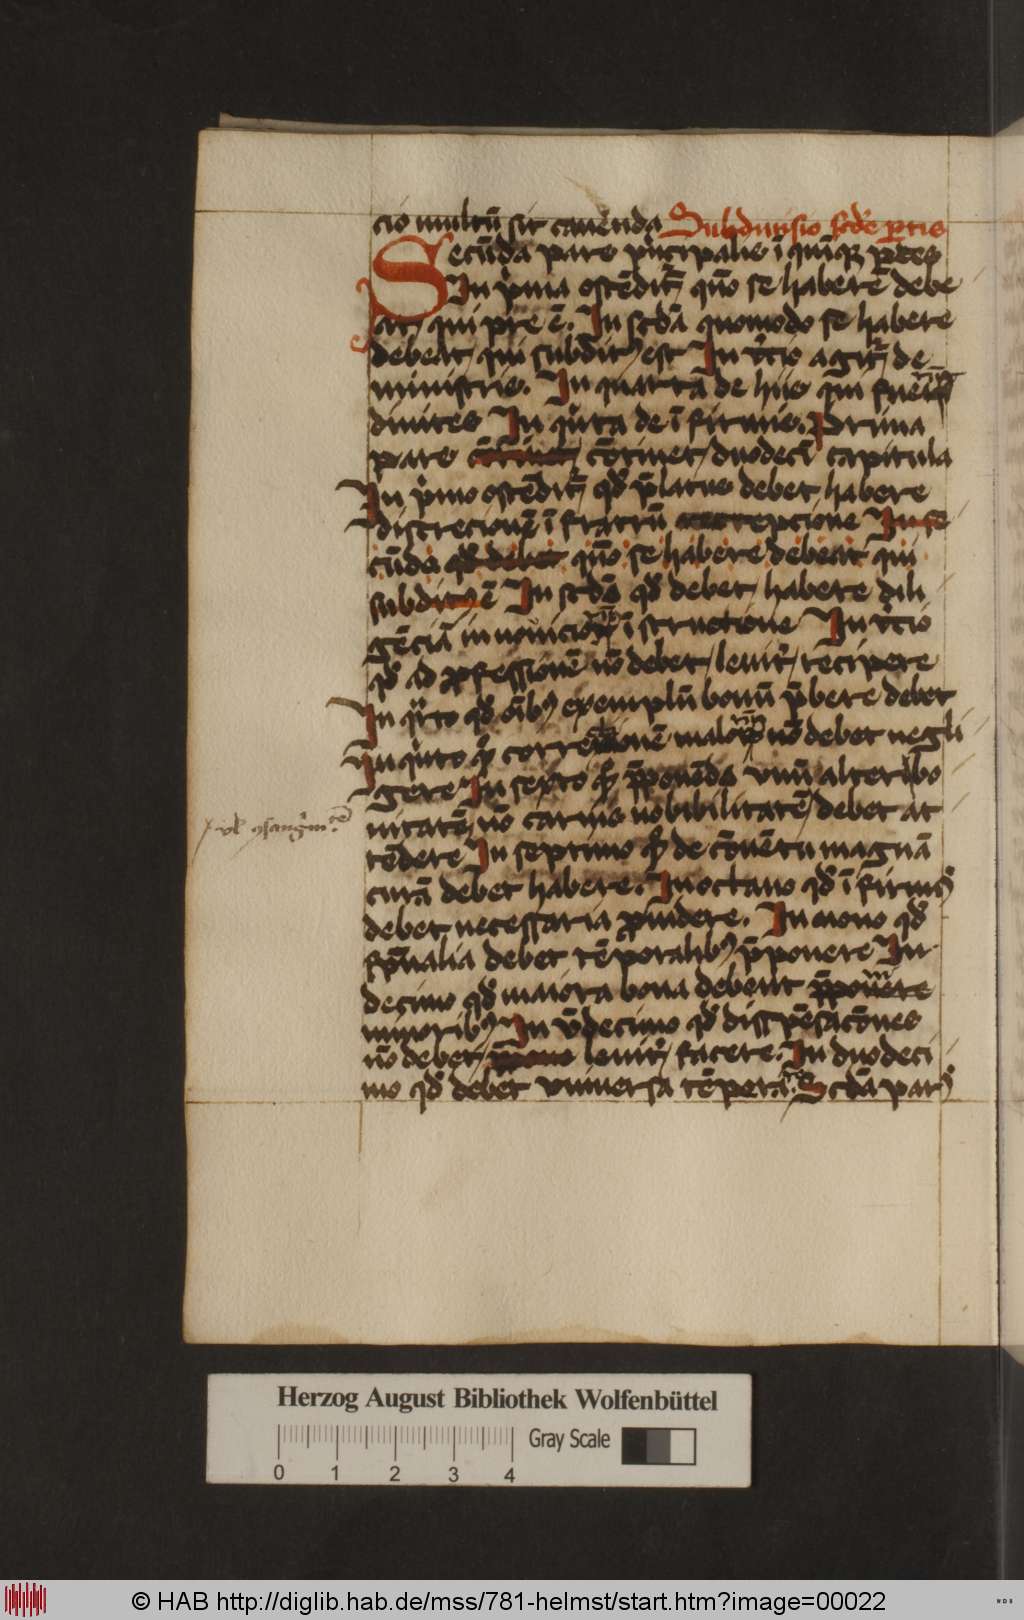 cio multū sit cauenda Subdiuisio scd̄e ꝑtis
Secūda pars pͥncipalis ī quīqꝫ ꝑtes
In pͥma ostēdit̄ quō se habere debe
at qui pre ē. In scd̄a quomodo se habere
debeat qui subditꝰ est In t̄cio agit̄ de
ministris. In quarta de hiis qui fuer̄t
diuites In qͥnta de īfirmis. Prima
pars cōtinet duodecī capitula
In pͥmo ostēdit̄ qd̄ p̄latus debet habere
discrecionē ī fratrū recepcione In se
cūdo qd̄ debet quō se habere debeat qui
subditꝰ ē In scd̄o qd̄ debet habere dili
gēciā in nouicioꝝ īstructione In t̄cio
qd̄ ad ꝓfessionē nō debet leuit̄ recipere
In qͣrto qd̄ oībꝰ exemplū bonū p̄bere debet
In qͥnto qd̄ correctionē maloꝝ nō debet negli
gere In sexto qd̄
uitatē nō carnis nobibilitatē debet at
tēdere In septimo qd̄ de cōuētu magnā
curā debet habere. In octauo qd̄ īfirmis
debet necessaria ꝓuidere. In nono qd̄
sp̄ualia debet tēporalibꝰ p̄ponere In
decimo qd̄ maiora bona debent p̄ponere
minoribꝰ In vndecimo qd̄ dispēsacōnes
nō debet leuit̄ facere. In duodeci
mo qd̄ debet vniuersa tēperare. Scd̄a pars
Herzog August Bibliothek Wolfenbüttel
Gray Scale
0 1 2 3 4
© HAB http://diglib.hab.de/mss/781-helmst/start.htm?image=00022